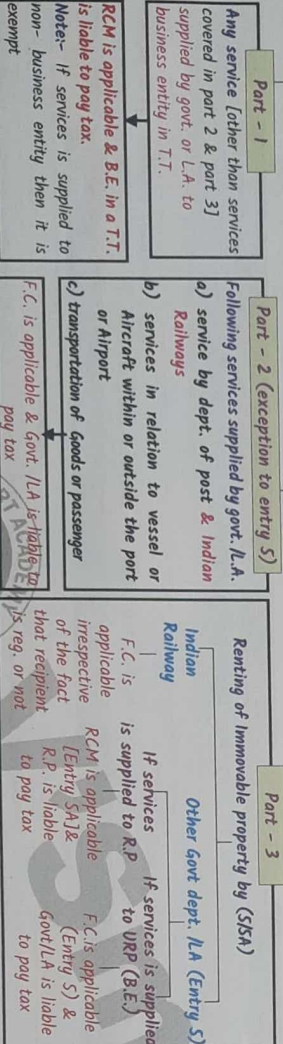 Part - 1
Any service [other than services
covered in part 2 & part 3]
supplied by govt. or L.A. to
business entity in T.T.
RCM is applicable & B.E. in a T.T.
is liable to pay tax.
Note:- If services is supplied to
non- business entity then it is
exempt
Part - 2 (exception to entry 5)
Following services supplied by govt. /L.A.
a) service by dept. of post & Indian
Railways
b) services in relation to vessel or
Aircraft within or outside the port
or Airport
c) transportation of Goods or passenger
F.C. is applicable & Govt. /LA is liable to
pay tax
Part - 3
Renting of Immovable property by (5/5A)
Indian
Railway
F.C. is
applicable
irrespective
of the fact
that recipient
is reg. or not
Other Govt dept. /LA (Entry 5)
If services
is supplied to R.P
RCM is applicable
[Entry 5A]&
R.P. is liable
to pay tax
If services is supplied
to URP (B.E.)
F.C.is applicable
(Entry 5) &
Govt/LA is liable
to pay tax